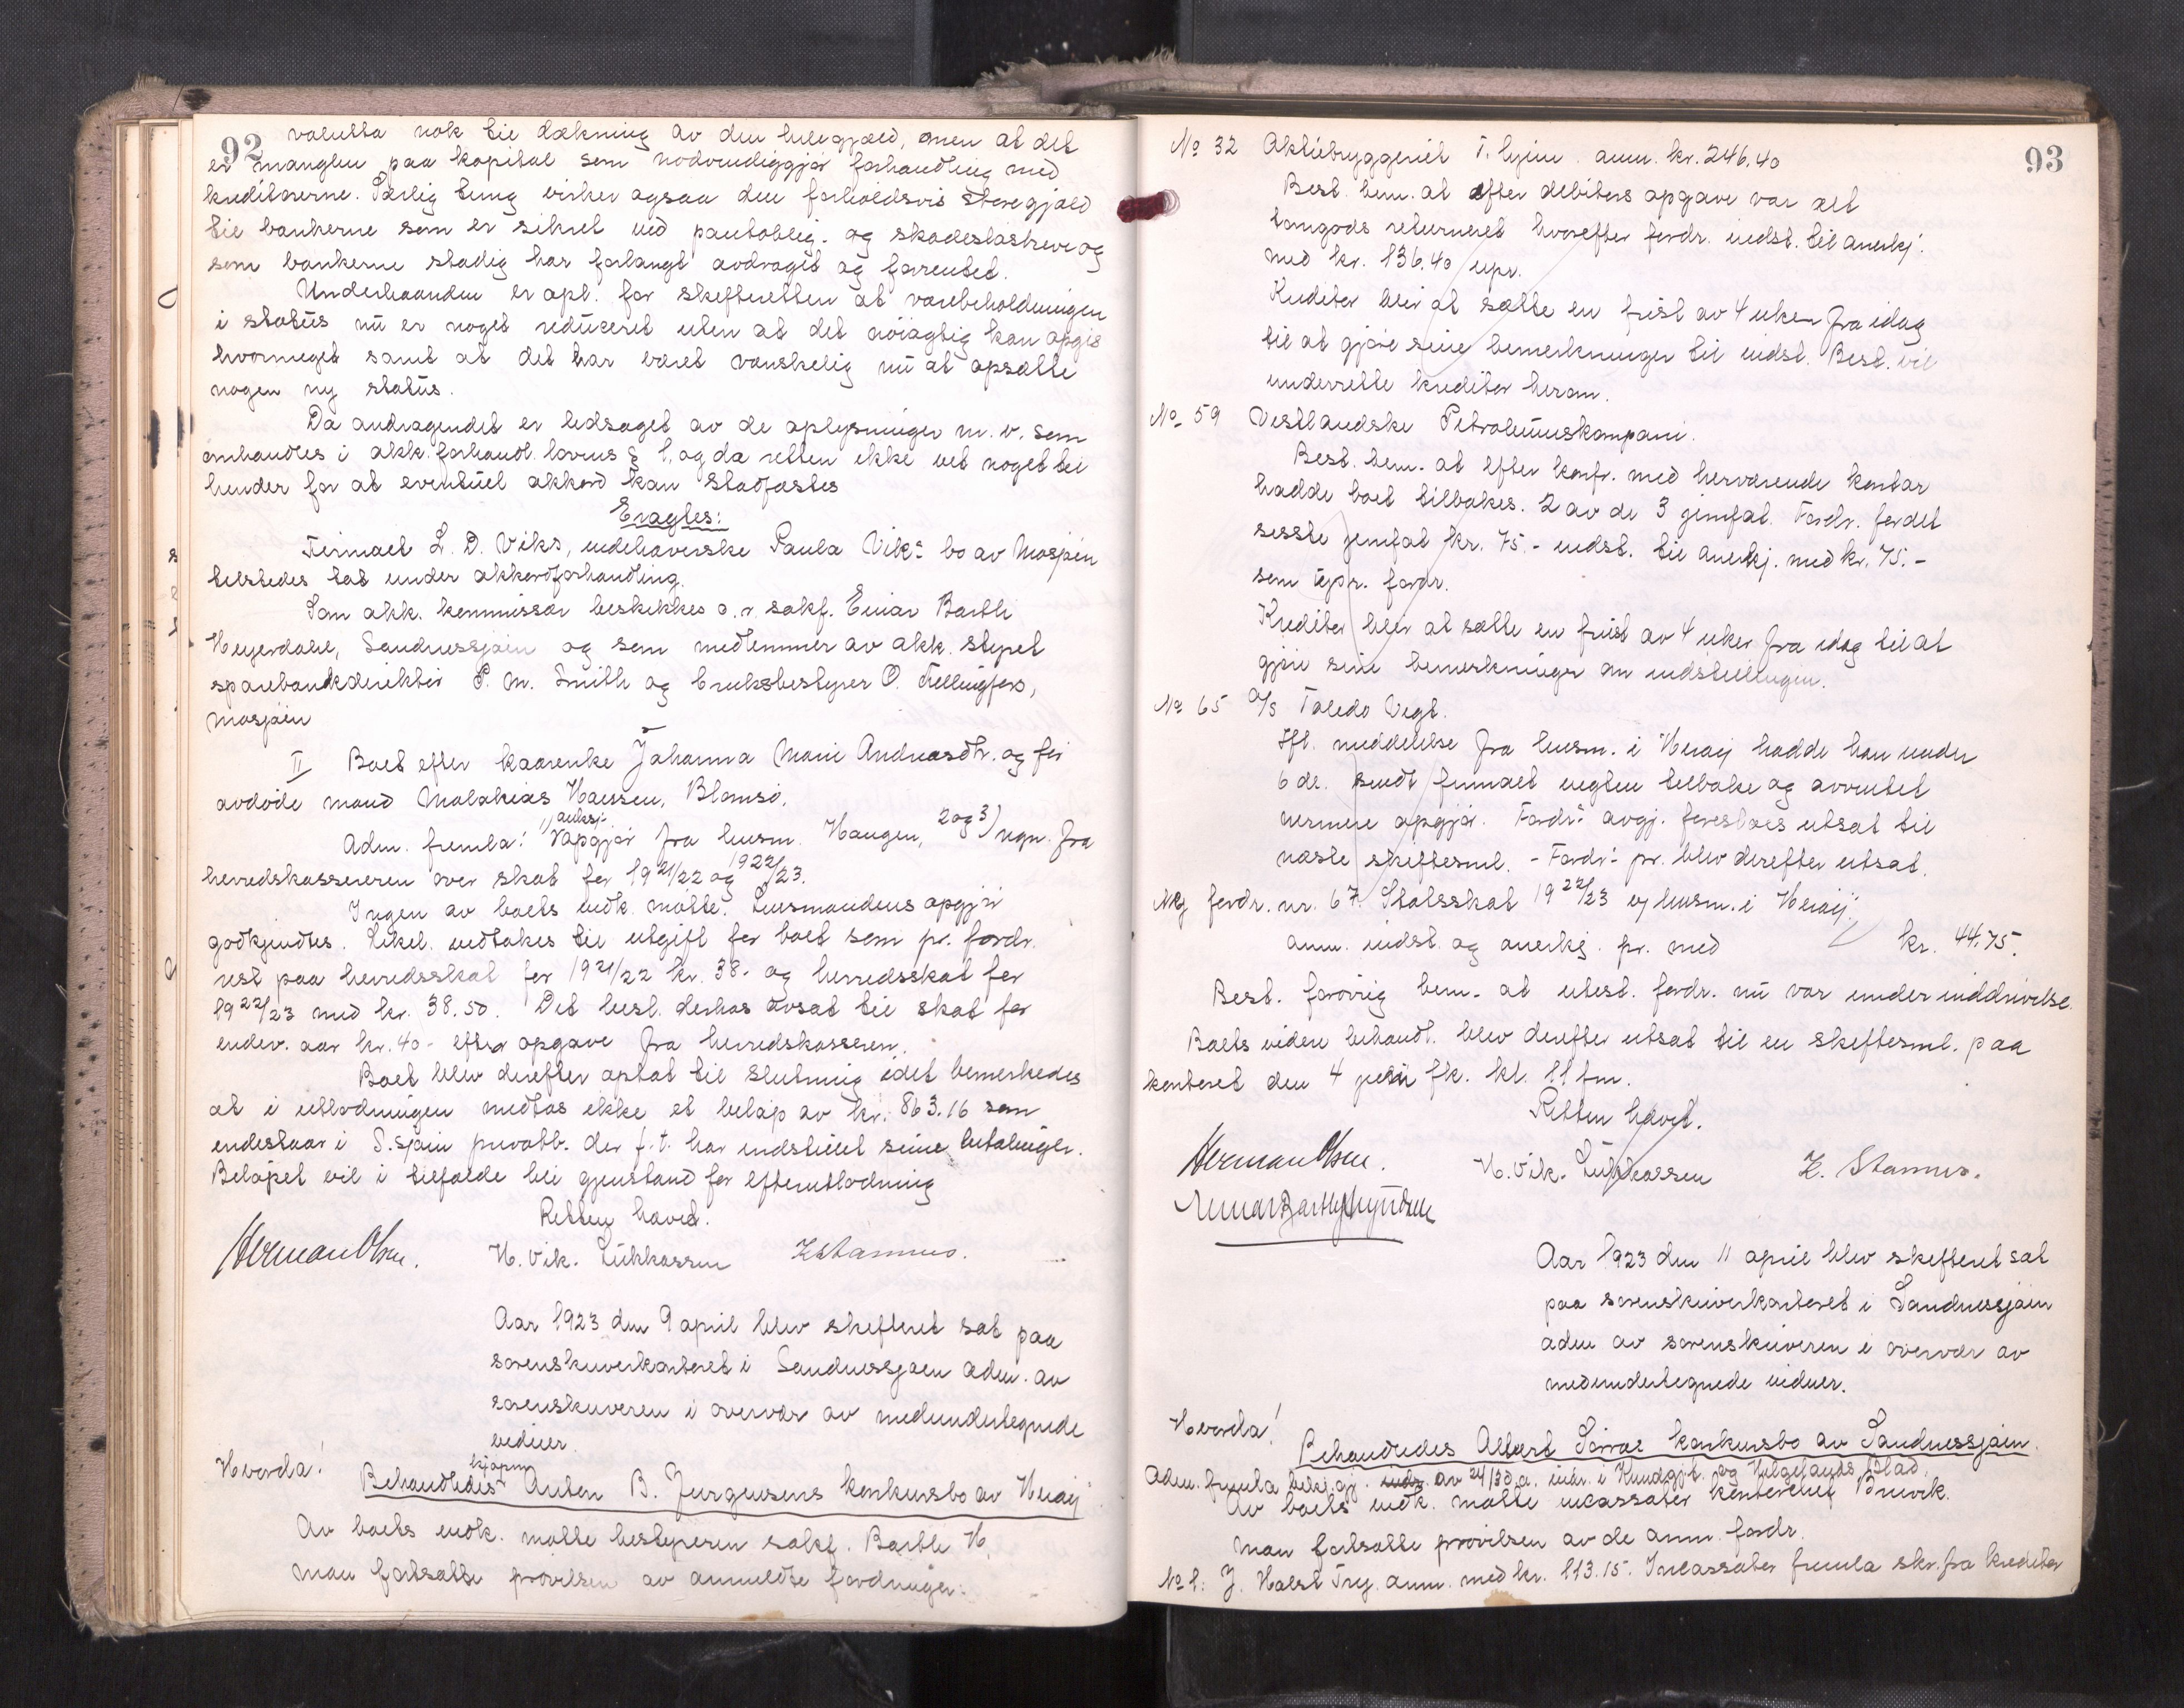 92
valutta nok til dækning av den hele gjæld, men at det
er manglen paa kapital som nødvendiggjør forhandling med
kreditorerne. Særlig tung virker ogsaa den forholdsvis store gjæld
til bankerne som er sikret ved pantoblig. og skadesløsbreve og
som bankerne stadig har forlangt avdraget og forrentet.
Underhaanden er opl. for skifteretten at varebeholdningen
i status nu er noget reduceret uten at det nøiagtig kan opgis
hvormeget samt at det har været vanskelig nu at opsætte
nogen ny status.
Da andragendet er ledsaget av de oplysninger m. v. som
omhandles i akk. forhandl. lovens § 1, og da retten ikke vet noget til
hinder for at eventuel akkord kan stadfæstes
Eragtes:
Firmaet L. D. Viks, indehaverske Paula Viks bo av Mosjøen
tilstedes tat under akkordforhandling.
Som akk. kommissær beskikkes o.r. sakf. Einar Barth
Heyerdahl, Sandnessjøen og som medlemmer av akk. styret
sparebankdirektør P. M. Smith og bruksbestyrer O. Fellingfors,
Mosjøen
II Boet efter kaarenke Johanna Marie Andreasdtr. og før
avdøde mand Malakias Hansen, Blomsø.
Adm. fremla: 1) auksj. opgjør fra lensm. Haugen, 2 og 3) regn. fra
herredskassereren over skat for 1921/22 og 1922/23.
Ingen av boets vedk. møtte. Lensmandens opgjør
godkjendtes. Likel. vedtokes til utgift for boet som pr. fordr.
rest paa herredsskat for 1921/22 kr. 38.- og herredsskat for
1922/23 med kr. 38.50. Det besl. derhos avsat til skat for
indev. aar kr. 40.- efter opgave fra herredskasseren.
Boet blev derefter optat til slutning idet bemerkedes
at i utlodningen medtas ikke et beløp av kr. 863.16 som
indestaar i S.sjøen privatb. der f. t. har indstillet sine betalinger.
Beløpet vil i tilfælde bli gjenstand for efterutlodning
Retten hævet.
Herman Olsen. H. Vik. Lukkassen Z Stamnes.
Aar 1923 den 9 april blev skifteret sat paa
sorenskriverkontoret i Sandnessjøen adm. av
sorenskriveren i overvær av medundertegnede
vidner.
Hvorda!
Behandledes kjøpm. Anton B. Jürgensens konkursbo av Herøy
Av boets vedk. møtte bestyreren sakf. Barth H.
Man fortsatte prøvelsen av anmeldte fordringer:
93
No 32 Aktiebryggeriet T.hjem. anm. kr. 246.40
Best. bem. at efter debitors opgave var alt
tomgods returneret hvorefter fordr. indst. til anerkj.
med kr. 136.40 upr.
Kreditor blir at sætte en frist av 4 uker fra idag
til at gjøre sine bemerkninger til indst. Best. vil
underrette kreditor herom.
No 59 Vestlandske Petroleumskompani.
Best. bem. at efter konfr. med herværende kontor
hadde boet tilbakes. 2 av de 3 jernfat. Fordr. for det
sisste jernfat kr. 75.- indst. til anerkj. med kr. 75.-
som upr. fordr.
Kreditor blir at sætte en frist av 4 uker fra idag til at
gjøre sine bemerkninger om indstillingen.
No 65 A/S Toledo Vegt.
Ifl. meddelelse fra lensm. i Herøy hadde han under
6 ds. sendt firmaet vegten tilbake og avventet
nermere opgjør. Fordr.s avgj. foreslaaes utsat til
næste skiftesml. - Fordr.s pr. blev derefter utsat.
Ny fordr. nr. 67. Statsskat 1922/23 v/ lensm. i Herøy:
anm. indst. og anerkj. pr. med kr. 44.75.
Best. forøvrig bem. at utest. fordr. nu var under inddrivelse.
Boets videre behandl. blev derefter utsat til en skiftesml. paa
kontoret den 4 juni fk. kl. 11 fm.
Retten hævet.
Herman Olsen. H. Vik. Lukkassen Z. Stamnes.
Einar Barth Heyerdahl
Aar 1923 den 11 april blev skifteret sat
paa sorenskriverkontoret i Sandnessjøen
adm av sorenskriveren i overvær av
medundertegnede vidner.
Hvorda!
Behandledes Albert Sørras konkursbo av Sandnessjøen.
Adm. fremla bekj.gj. av 24/3 d.a. indr. i Kundgjt. og Helgelands Blad.
Av boets vedk. møtte incassator Bruvik.
Man fortsatte prøvelsen av de anm. fordr.
No 1: J. Holst Try. anm. med kr. 113.15. Incassator fremla skr. fra kreditor